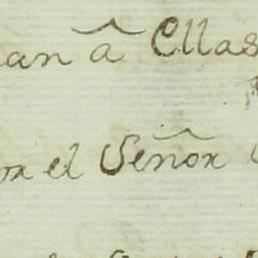 an â Ellas
or el Señor